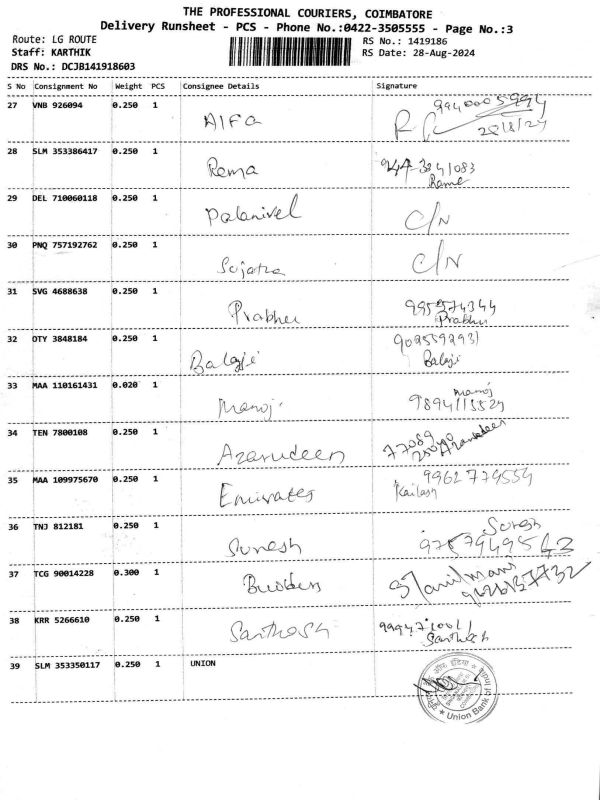 THE PROFESSIONAL COURIERS, COIMBATORE
Delivery Runsheet - PCS - Phone No.:0422-3505555 - Page No.:3
Route: LG ROUTE
RS No.: 1419186
Staff: KARTHIK
RS Date: 28-Aug-2024
DRS No.: DCJB141918603
S No Consignment No Weight PCS Consignee Details Signature
27 VNB 926094 0.250 1 Alfa 9940005994
28/8/24
28 SLM 353386417 0.250 1 Rema
Rema
29 DEL 710060118 0.250 1 Palanivel C/N
30 PNQ 757192762 0.250 1 Sujatha C/N
31 SVG 4688638 0.250 1 Prabhu 995574344
Prabhu
32 OTY 3848184 0.250 1 Balaji 9025592931
Balaji
33 MAA 110161431 0.020 1 Manoj Manoj
9894115524
34 TEN 7800108 0.250 1 Azarudeen 77089
Azarudeen
35 MAA 109975670 0.250 1 Emirates 9962774554
Kailash
36 TNJ 812181 0.250 1 Suresh Suresh
9757949543
37 TCG 90014228 0.300 1 Builders
38 KRR 5266610 0.250 1 Santhosh
Santhosh
39 SLM 353350117 0.250 1 UNION
Union Bank of India